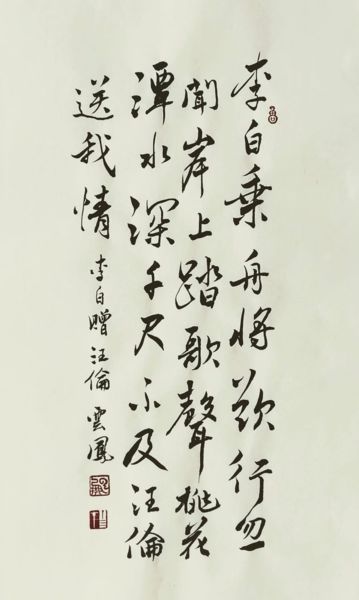 李白乘舟將欲行忽
聞岸上踏歌聲桃花
潭水深千尺不及汪倫
送我情
李白贈汪倫 雲鳳